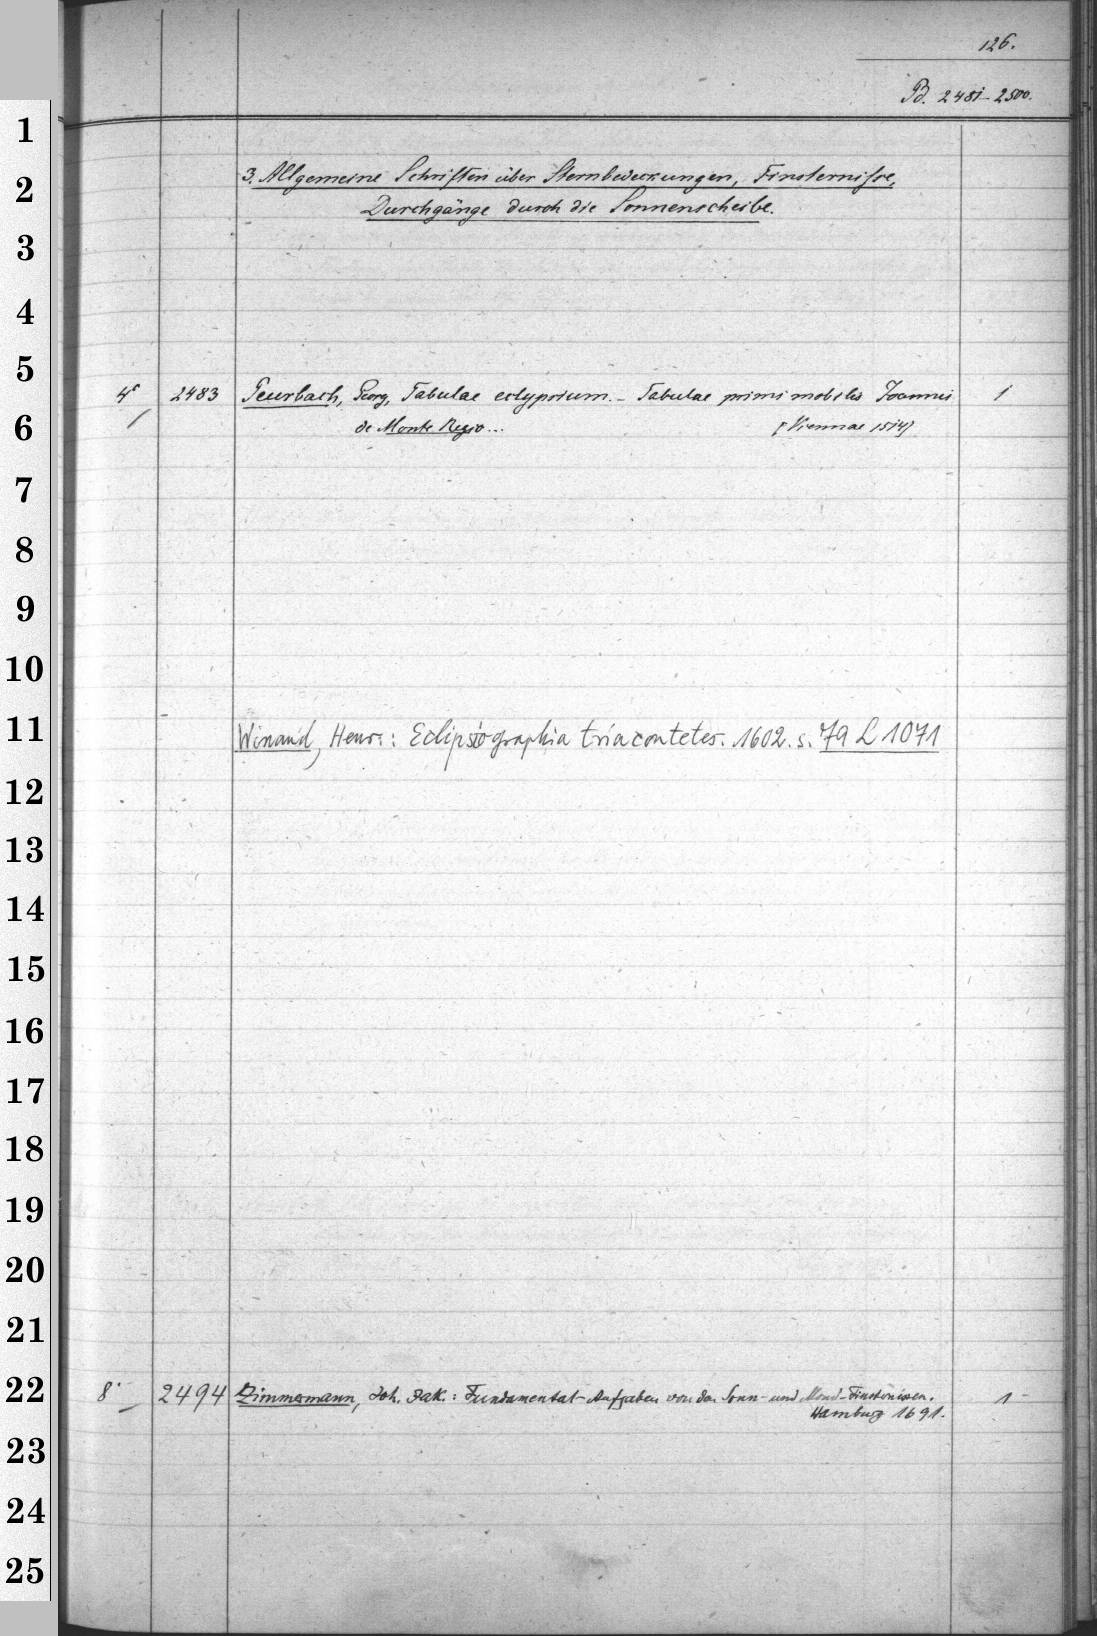 126.
B. 2481-2500.
3. Allgemeine Schriften über Sternbedeckungen, Finsternisse,
Durchgänge durch die Sonnenscheibe.
4° 2483 Peurbach, Georg, Tabulae eclypsium. - Tabulae primi mobilis Joannis 1
de Monte Regio... [Viennae 1514]
Winand, Henr.: Eclipsiographia triacontetes. 1602. s. 79 L 1071
8° 2494 Zimmermann, Joh. Jak.: Fundamental-Aufgaben von den Sonn- und Mond-Finsternissen. 1
Hamburg 1691.
1
2
3
4
5
6
7
8
9
10
11
12
13
14
15
16
17
18
19
20
21
22
23
24
25